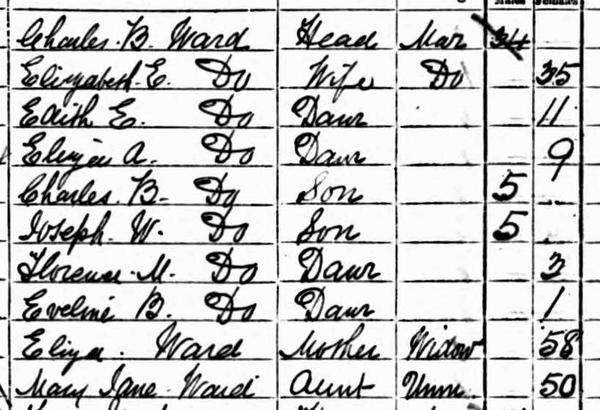 Males Females
Charles. B. Ward Head Mar 34
Elizabeth. E. Do Wife Do 35
Edith E. Do Daur 11
Eliza A. Do Daur 9
Charles. B. Do Son 5
Joseph. W. Do Son 5
Florence. M. Do Daur 3
Eveline B. Do Daur 1
Eliza. Ward Mother Widow 58
Mary Jane Ward Aunt Unm. 50